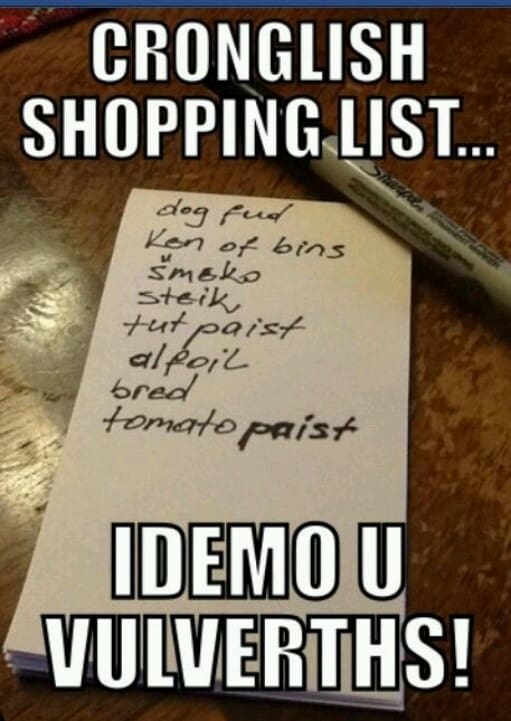 CRONGLISH
SHOPPING LIST...
Sharpie
dog fud
Ken of bins
šmeko
steik
tut paist
alfoil
bred
tomato paist
IDEMO U
VULVERTHS!